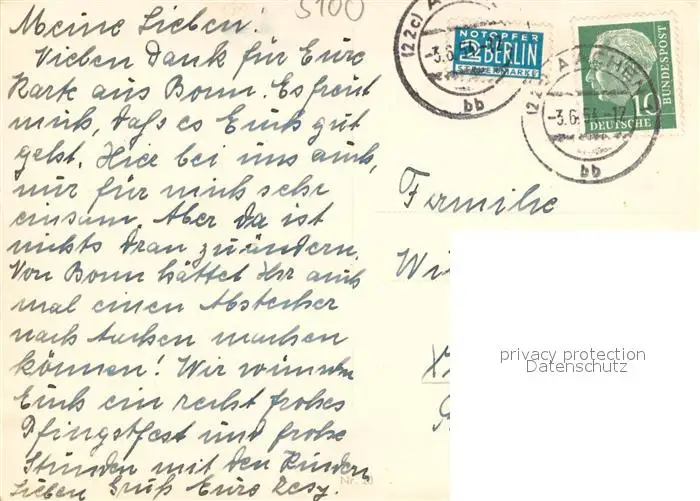 5100
Meine Lieben!
Vielen Dank für Eure
Karte aus Bonn. Es freut
mich, daß es Euch gut
geht. Hier bei uns auch,
nur für mich sehr
einsam. Aber da ist
nichts dran zu ändern.
Von Bonn hättet Ihr auch
mal einen Abstecher
nach Aachen machen
können! Wir wünschen
Euch ein recht frohes
Pfingstfest und frohe
Stunden mit den Kindern
Lieben Gruß Eure
NOTOPFER
2 BERLIN
STEUERMARKE
(22c)
-3.6.54
bb
AACHEN
-3.6.54.-17
bb
10
DEUTSCHE
BUNDESPOST
Familie
privacy protection
Datenschutz
Nr.